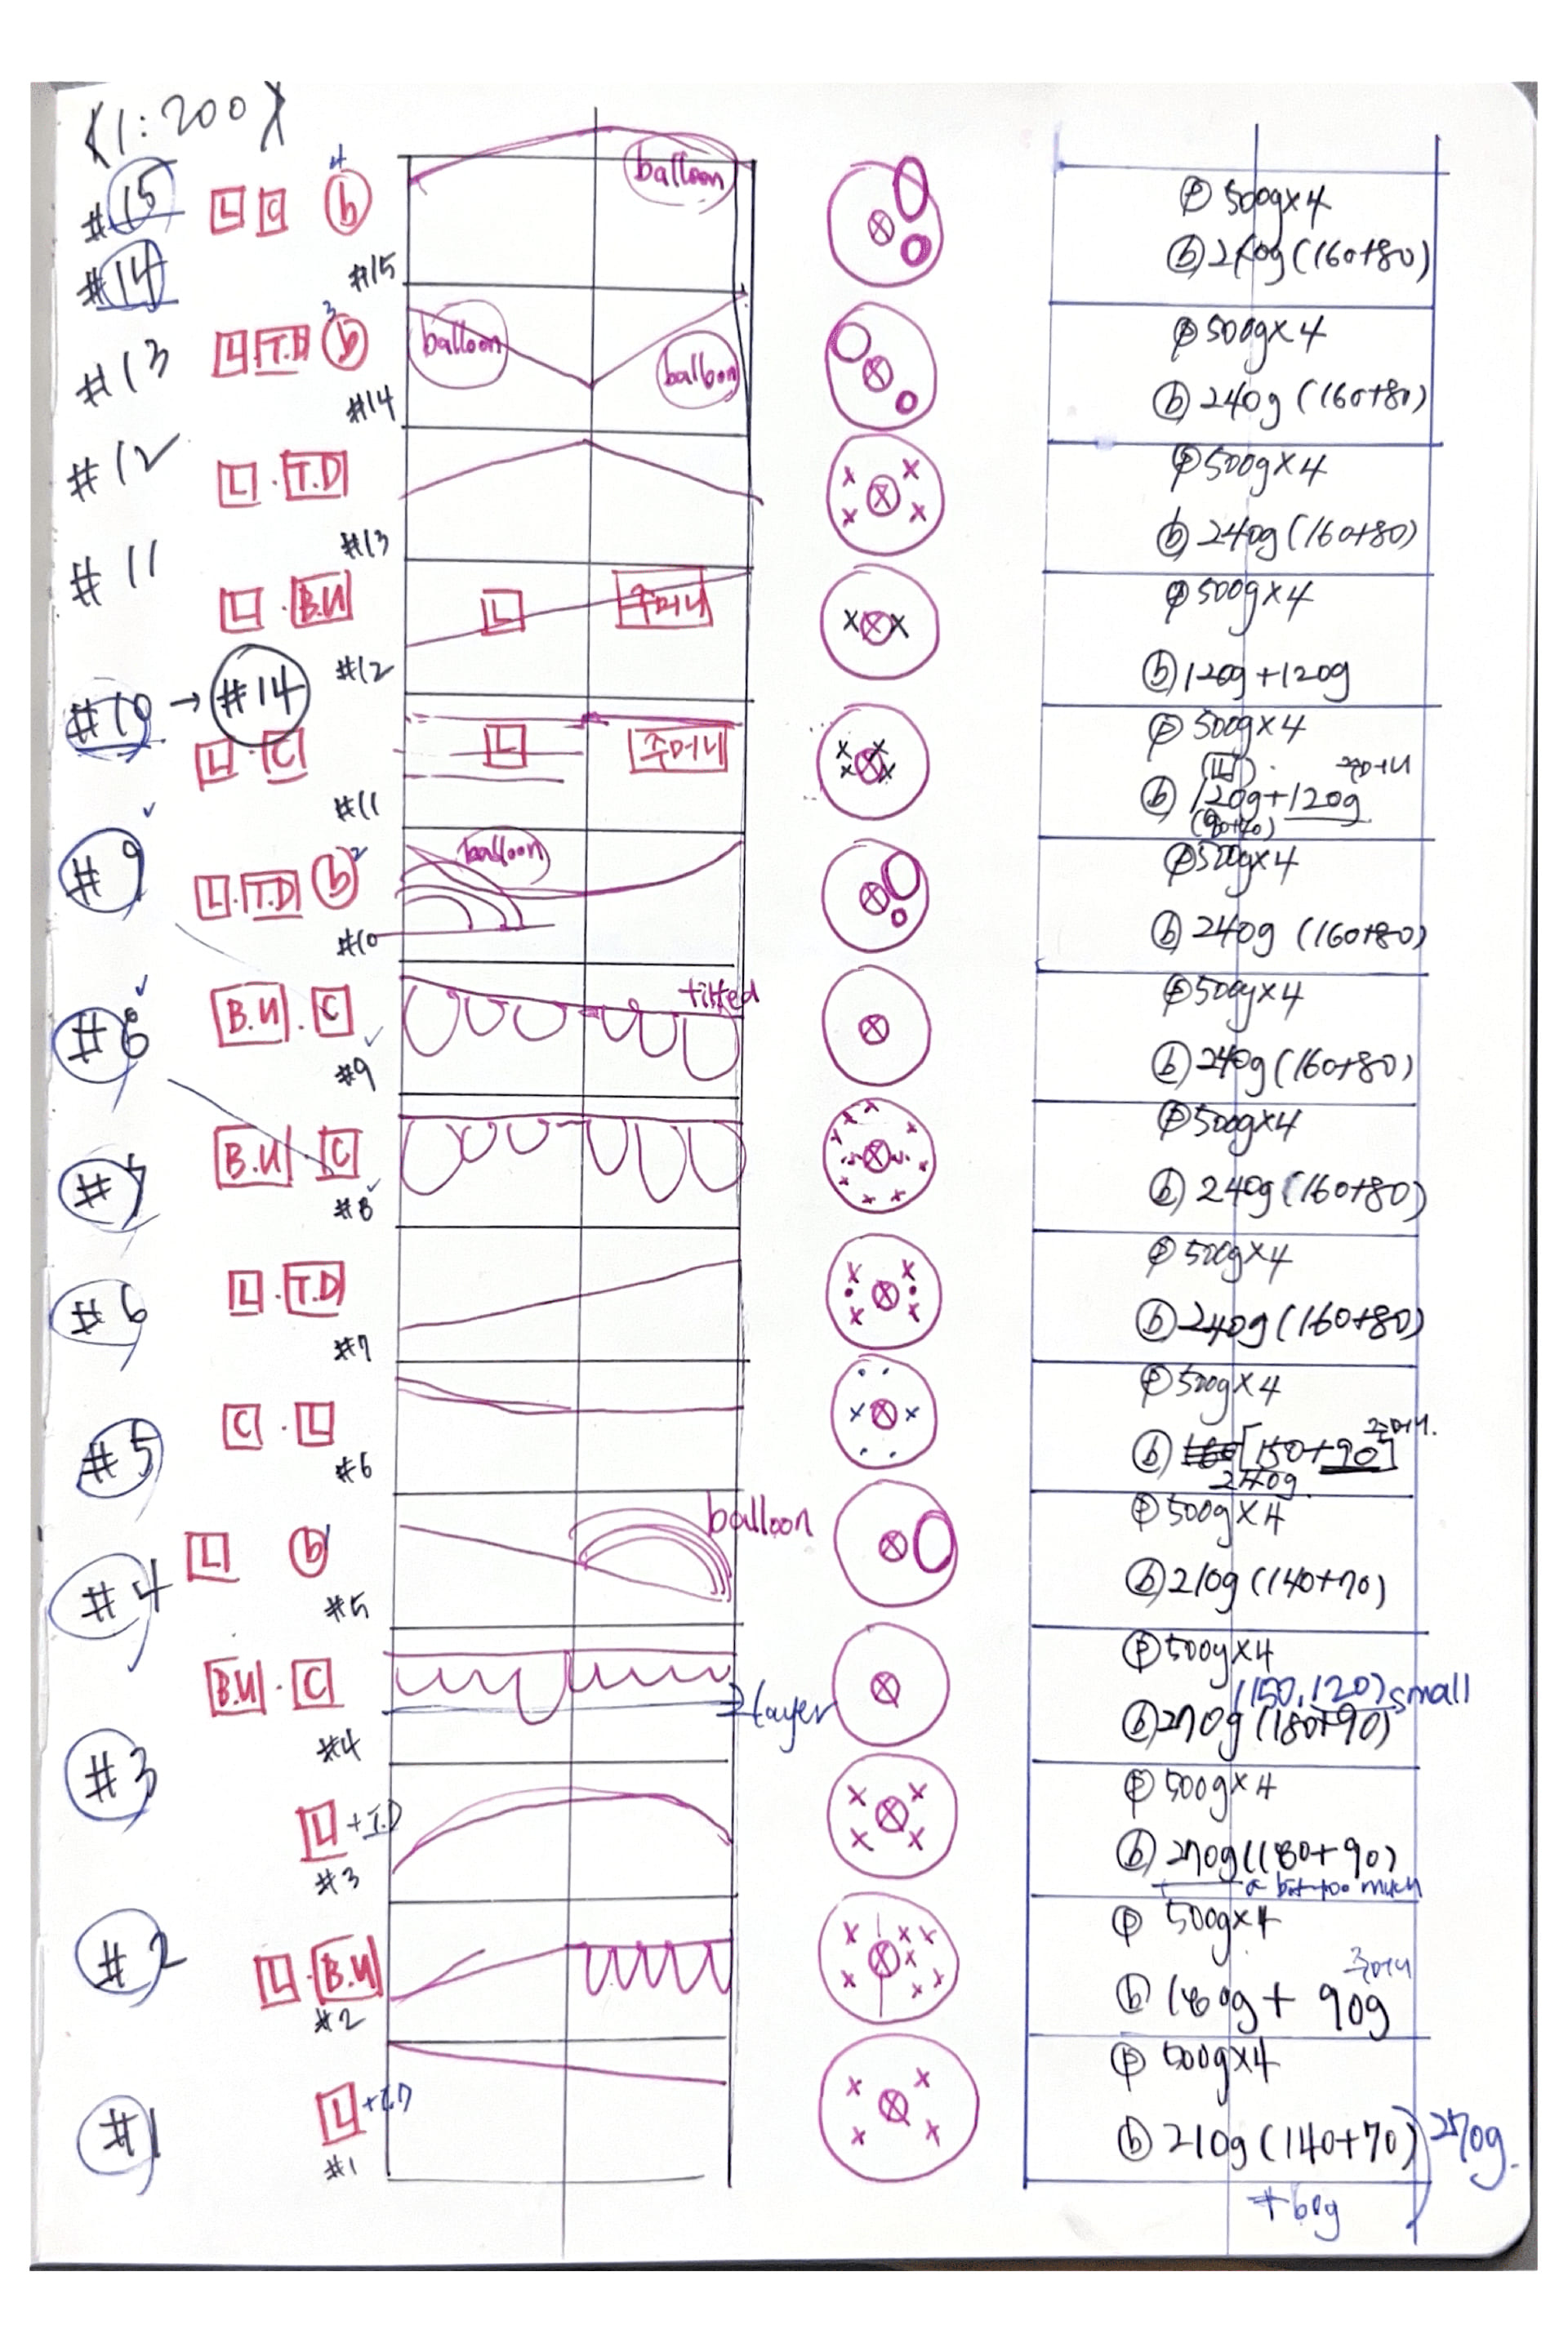 <1:200>
#15 L C b 4 balloon #15 Ⓟ 500g×4
ⓑ 240g (160+80)
#14
#13 L T.D b 3 balloon balloon #14 Ⓟ 500g×4
ⓑ 240g (160+80)
#12 L · T.D #13 Ⓟ 500g×4
ⓑ 240g (160+80)
#11 L · B.U L 주머니 #12 Ⓟ 500g×4
ⓑ 120g+120g
#10 → #14
L · C L 주머니 #11 Ⓟ 500g×4
L 주머니
ⓑ 120g+120g
#9 L · T.D b 2 balloon #10 Ⓟ 500g×4
ⓑ 240g (160+80)
#8 B.U · C tilted #9 Ⓟ 500g×4
ⓑ 240g (160+80)
#7 B.U · C #8 Ⓟ 500g×4
ⓑ 240g (160+80)
#6 L · T.D #7 Ⓟ 500g×4
ⓑ 240g (160+80)
#5 C · L #6 Ⓟ 500g×4
주머니
ⓑ [150+90]
240g
#4 L b 1 balloon #5 Ⓟ 500g×4
ⓑ 210g (140+70)
B.U · C layer #4 Ⓟ 500g×4
(150,120) small
ⓑ 270g (180+90)
#3 L + T.D #3 Ⓟ 500g×4
ⓑ 270g (180+90)
a bit too much
#2 L · B.U #2 Ⓟ 500g×4
주머니
ⓑ 180g + 90g
#1 L + T.D #1 Ⓟ 500g×4
ⓑ 210g (140+70) 270g.
+60g